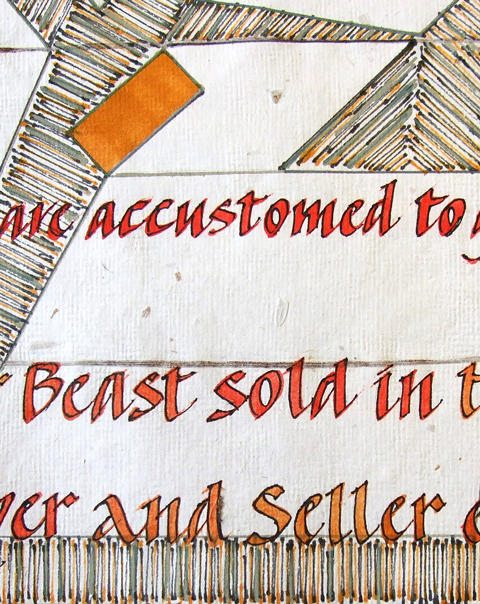 are accustomed to
Beast sold in
and Seller